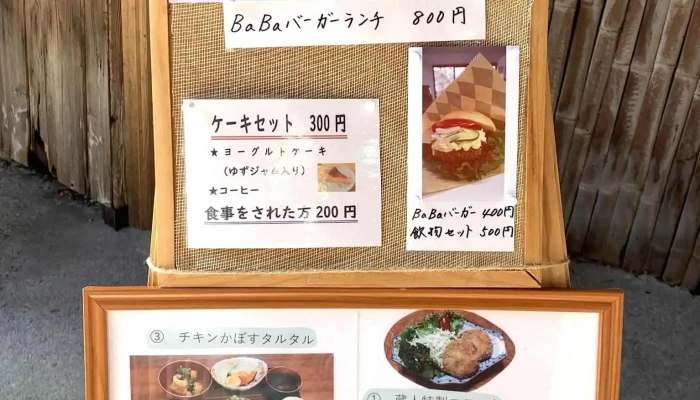 BaBaバーガーランチ 800円
ケーキセット 300円
★ヨーグルトケーキ
(ゆずジャム入り)
★コーヒー
食事をされた方200円
BaBaバーガー 400円
飲物セット 500円
③ チキンかぼすタルタル
① 蔵人特製